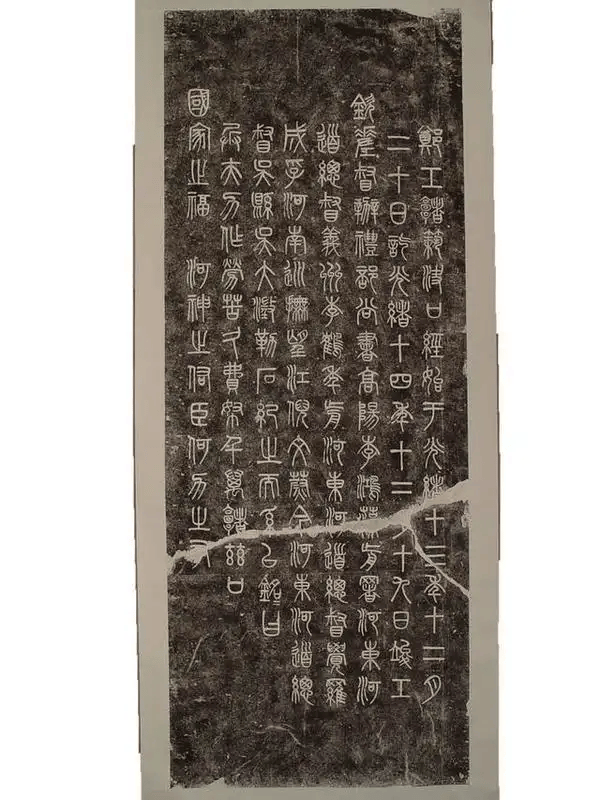 鄭工堵築決口經始于光緒十三年十二月
二十日訖光緒十四年十二月十九日竣工
欽差督辦禮部尚書高陽李鴻藻前署河東河
道總督義州李鶴年前河東河道總督覺羅
成孚河南巡撫望江倪文蔚今河東河道總
督吳縣吳大澂勒石紀之而系以銘曰
兵夫力作勞苦久費帑千萬堵茲口
國家之福 河神之佑臣何力之有